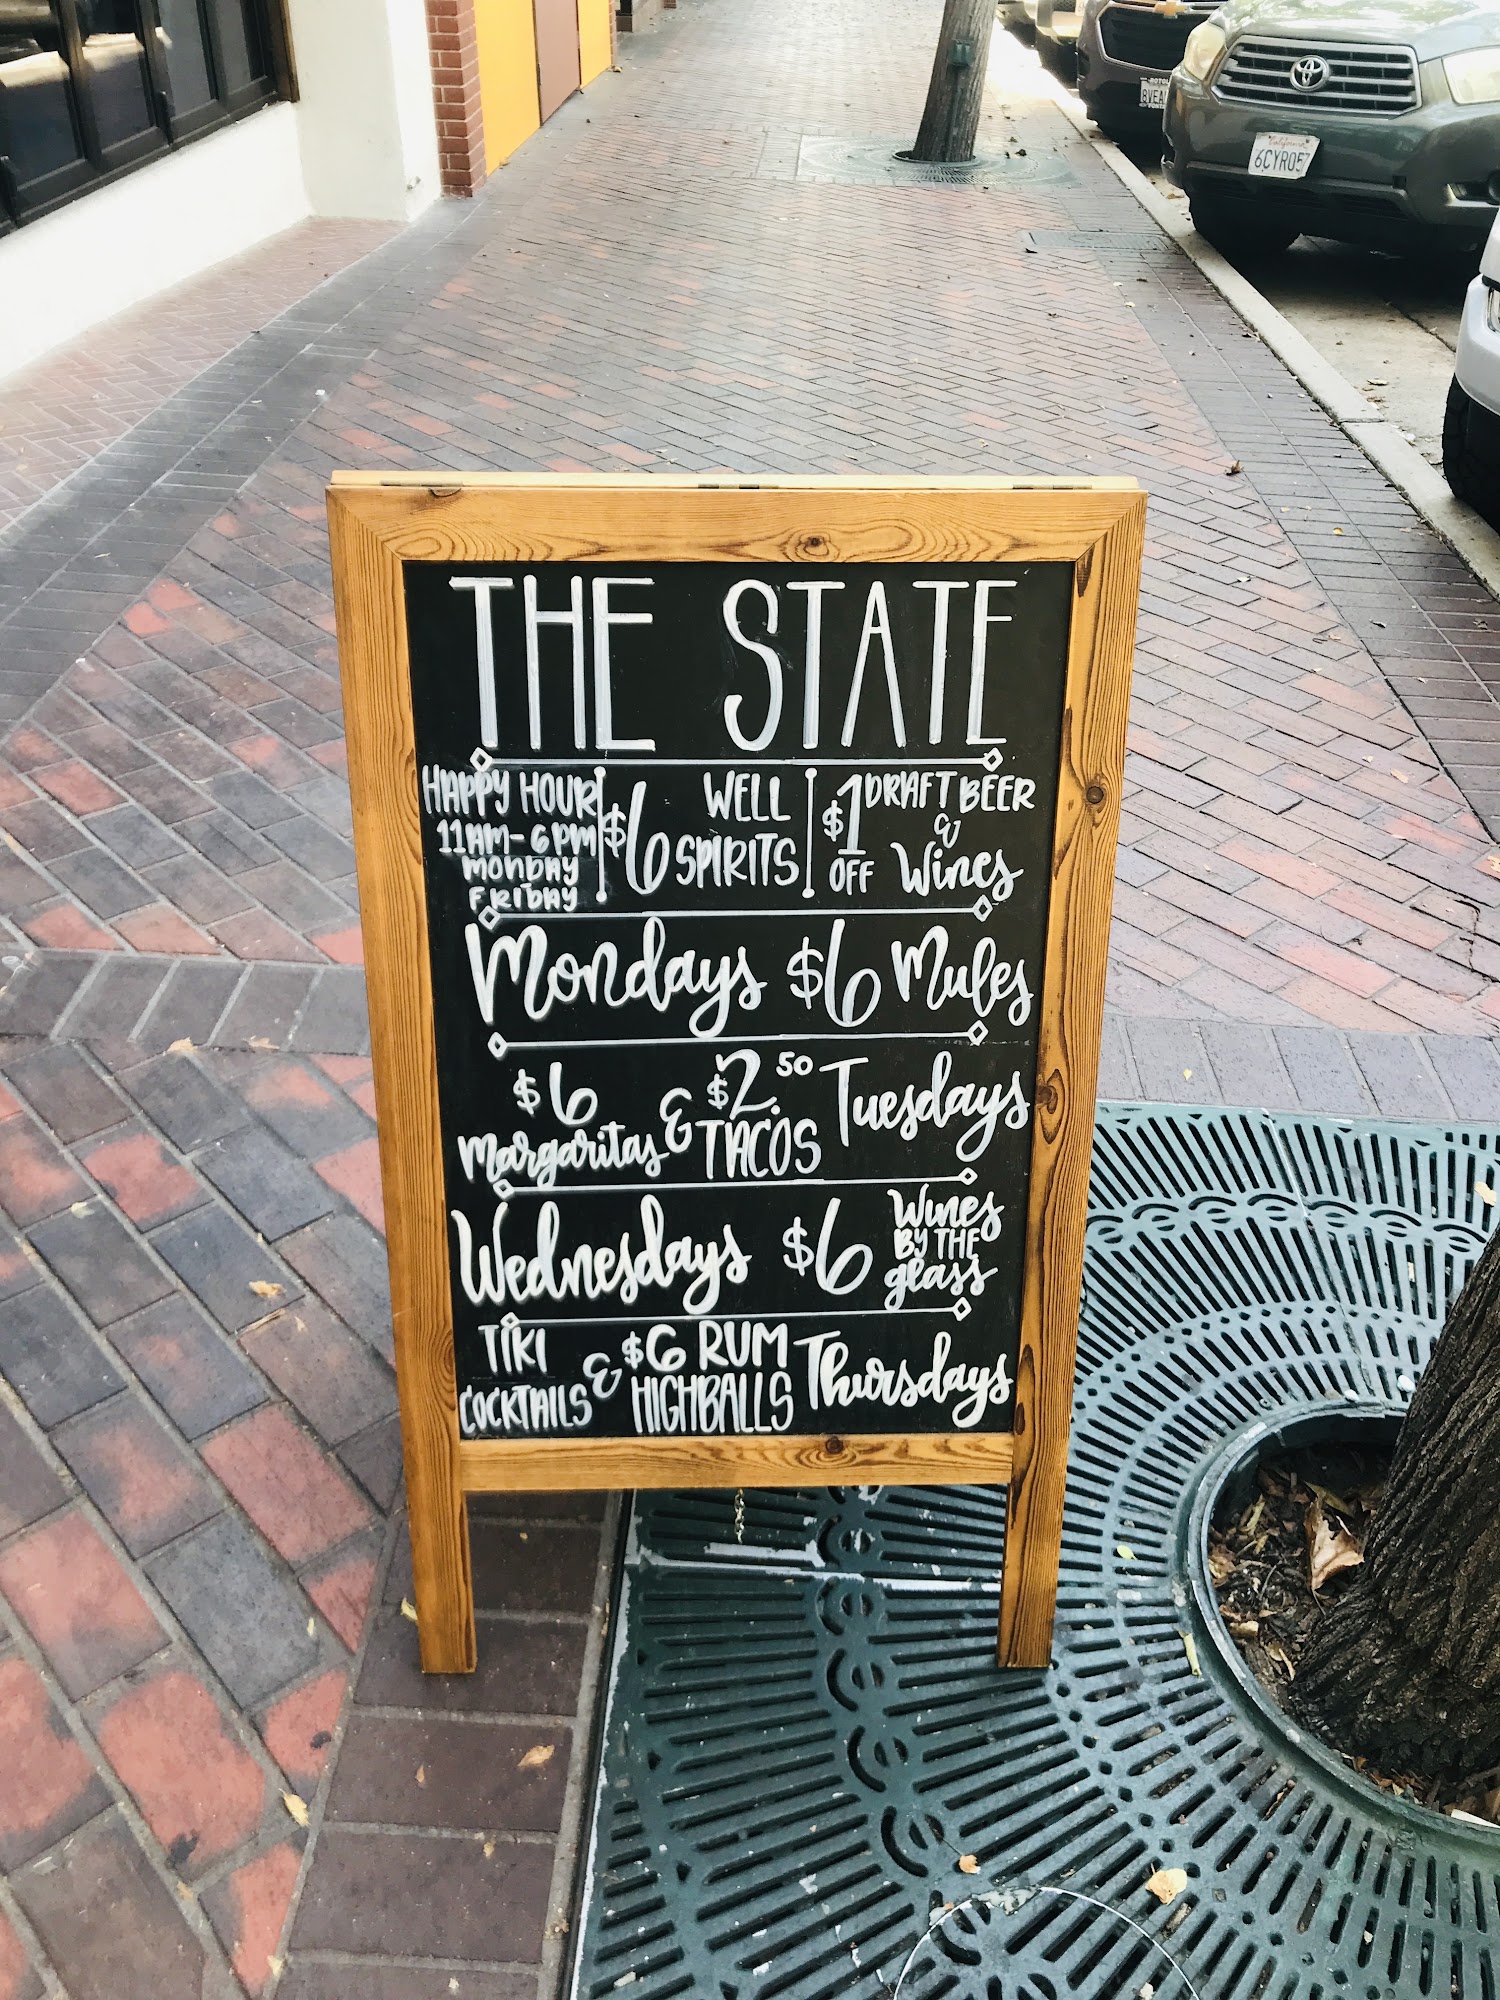 California
6CYR057
THE STATE
HAPPY HOUR
11AM-6PM
MONDAY
FRIDAY
$6 WELL
SPIRITS
$1 OFF DRAFT BEER
&
Wines
Mondays $6 Mules
$6
Margaritas & $2.50
TACOS Tuesdays
Wednesdays $6 Wines
BY THE
glass
TIKI
COCKTAILS & $6 RUM
HIGHBALLS Thursdays